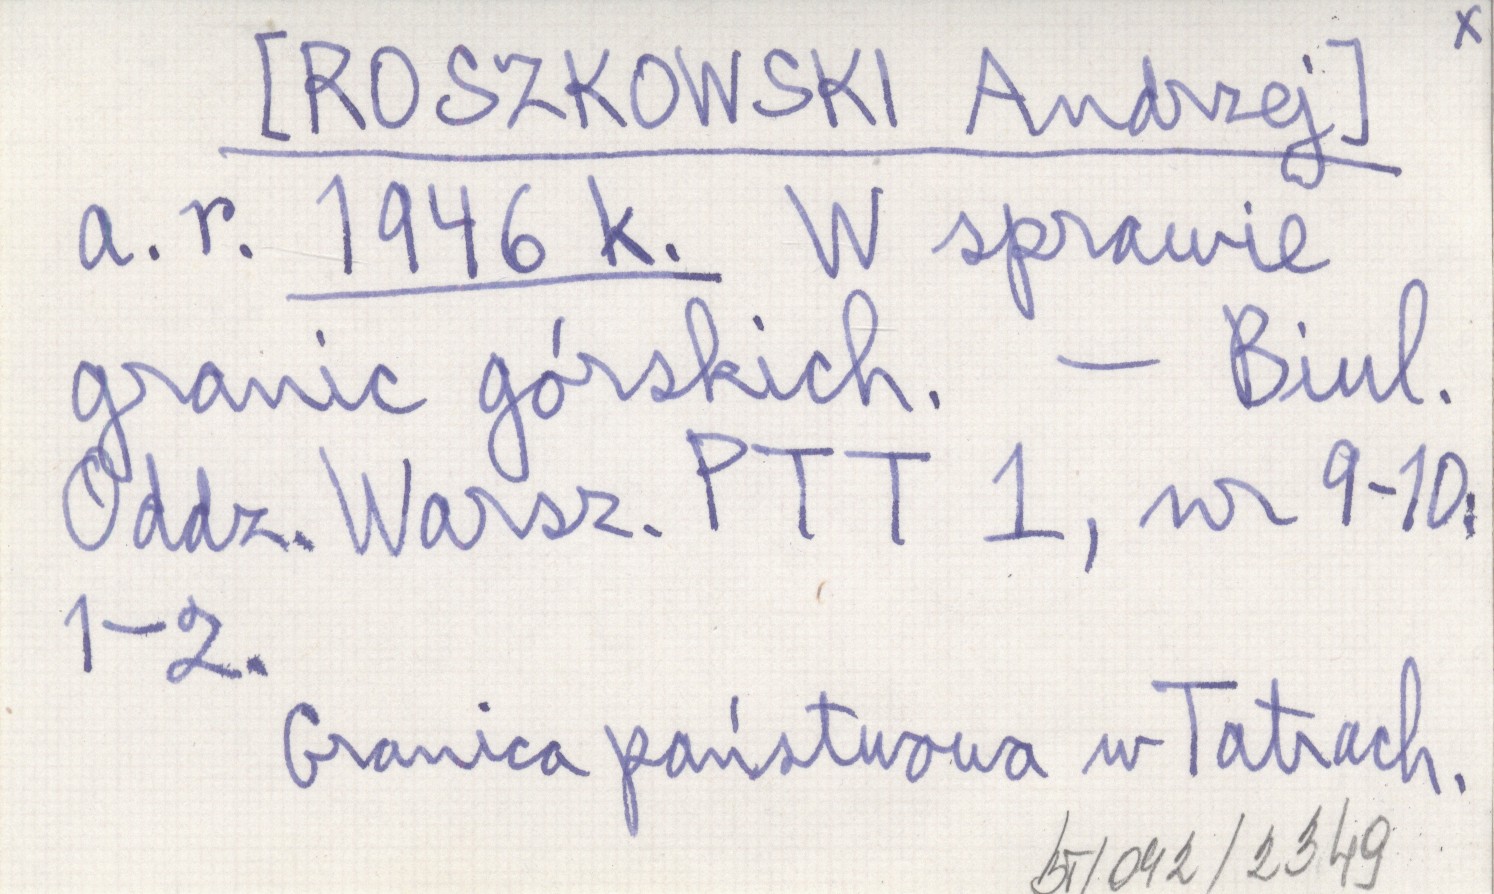 x
[ROSZKOWSKI Andrzej]
a. r. 1946 k. W sprawie
granic górskich. — Biul.
Oddz. Warsz. PTT 1, nr 9-10:
1-2.
Granica państwowa w Tatrach.
BT/042/2349